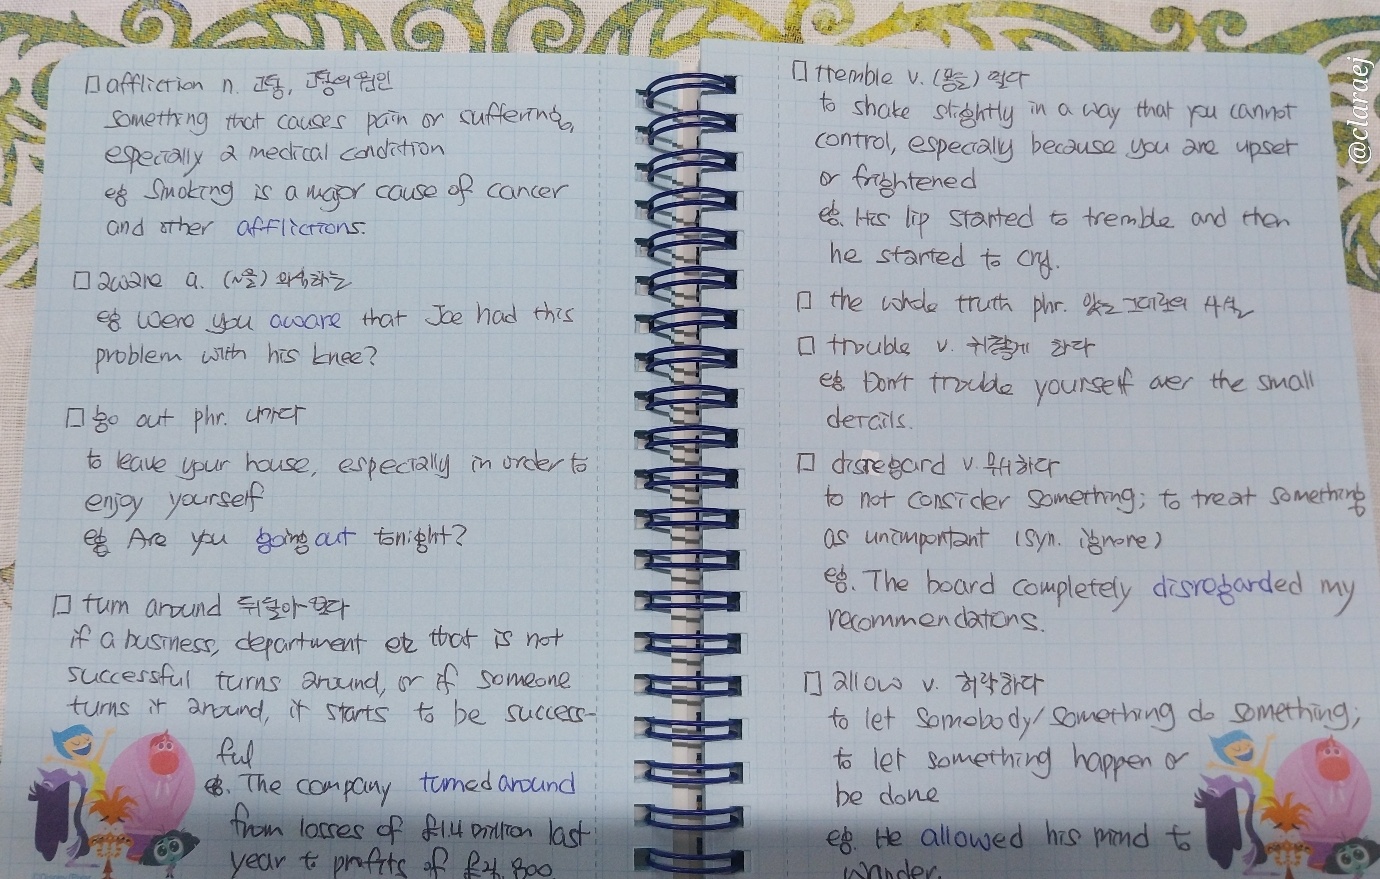 □ affliction n. 고통, 고통의 원인
something that causes pain or suffering,
especially a medical condition
eg Smoking is a major cause of cancer
and other afflictions.
□ aware a. (~을) 의식하는
eg Were you aware that Joe had this
problem with his knee?
□ go out phr. 나가다
to leave your house, especially in order to
enjoy yourself
eg Are you going out tonight?
□ turn around 뒤돌아
if a business, department etc that is not
successful turns around, or if someone
turns it around, it starts to be success-
ful
eg. The company turned around
from losses of £1.4 million last
year to profits of
□ tremble v. (몸을) 떨다
to shake slightly in a way that you cannot
control, especially because you are upset
or frightened
eg. His lip started to tremble and then
he started to cry.
□ the whole truth phr. 있는 그대로의 사실
□ trouble v. 귀찮게 하다
eg Don't trouble yourself over the small
details.
□ disregard v. 무시하다
to not consider something; to treat something
as unimportant (syn. ignore)
eg. The board completely disregarded my
recommendations.
□ allow v. 허락하다
to let somebody/something do something;
to let something happen or
be done
eg. He allowed his mind to
wander.
@claraej